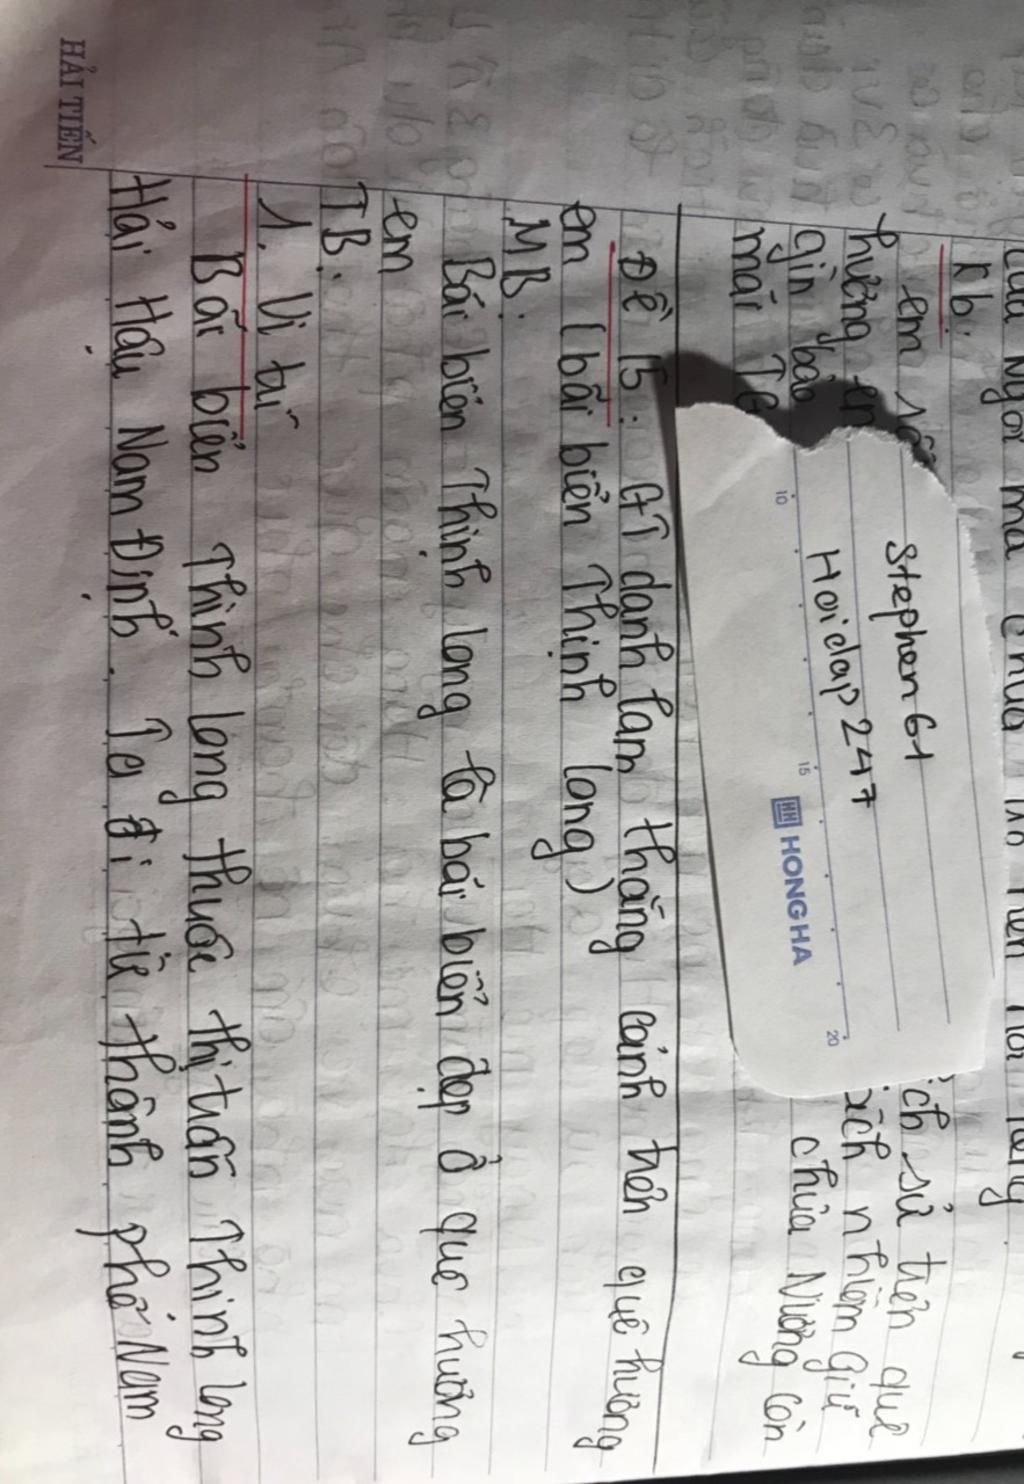 của Ngôi mà chùa
Kb:
em
ịch sử trên quê
hương em
ách nhiệm giữ
gìn bảo
chùa Nương còn
mãi
Stephen61
Hoidap247
10 15 20
HH HONG HA
Đề 15: Gt danh lam thắng cảnh trên quê hương
em (bãi biển Thịnh long)
MB:
Bãi biển Thịnh long là bãi biển đẹp ở quê hương
em
TB:
1. Vị trí
Bãi biển Thịnh long thuộc thị trấn Thịnh long
Hải Hậu Nam Định. Ta đi từ thành phố Nam
HẢI TIẾN